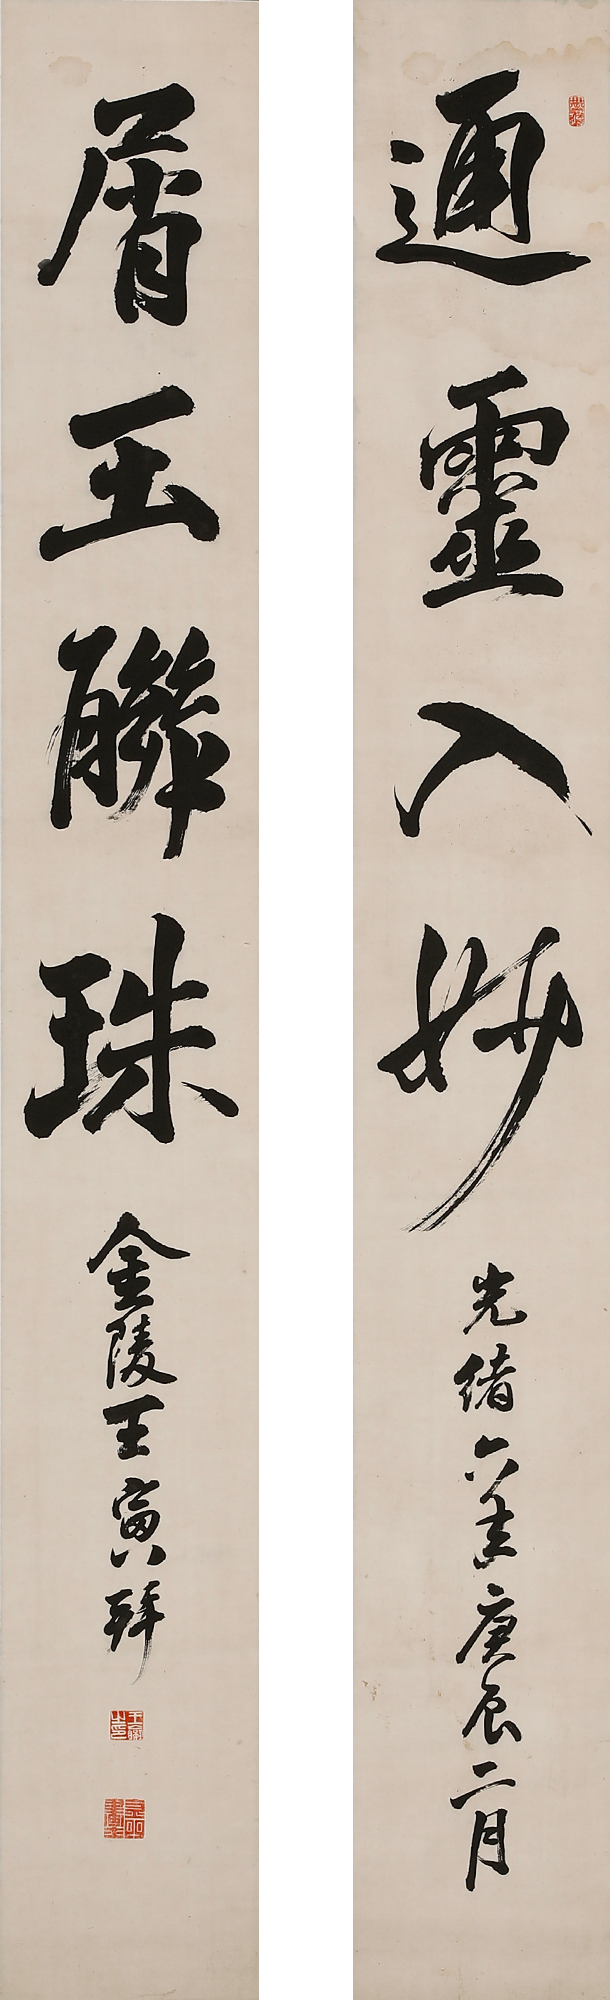 通靈入妙
光緒六年庚辰二月
屑玉聯珠
金陵王寅拜